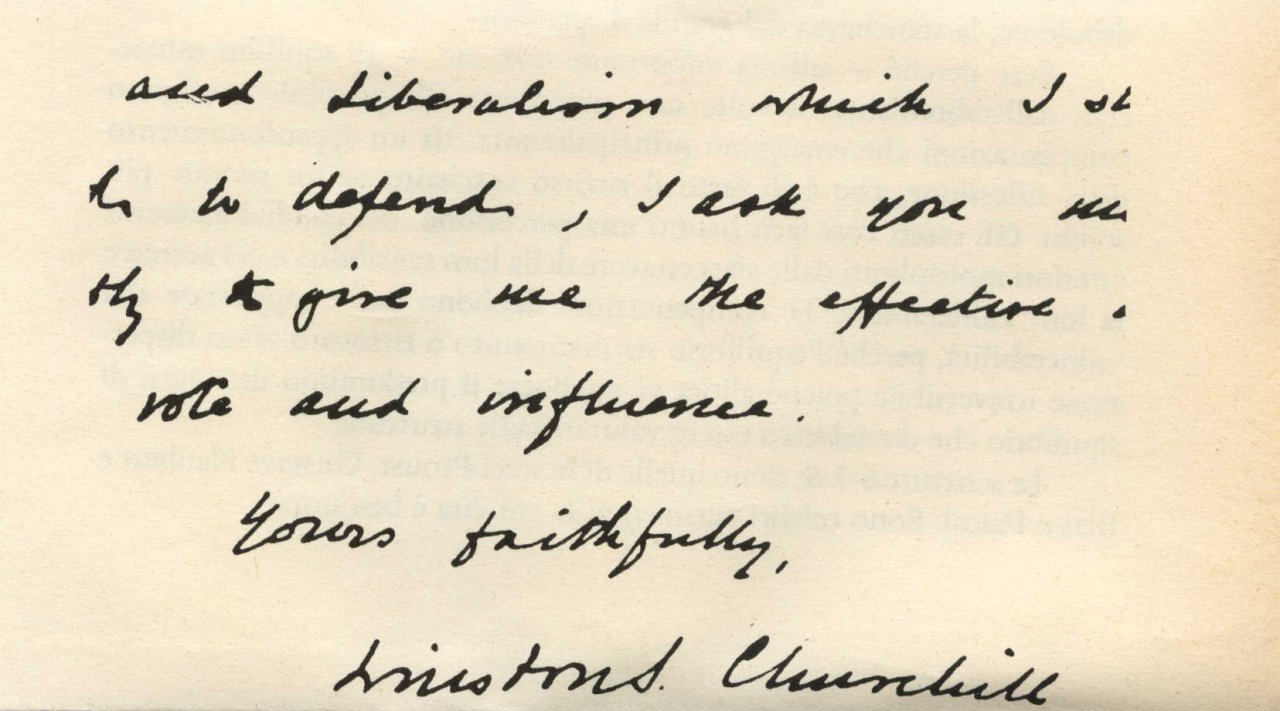 and Liberalism which I st
to defend, I ask you
to give me the effective
vote and influence.
Yours faithfully,
Winston S. Churchill